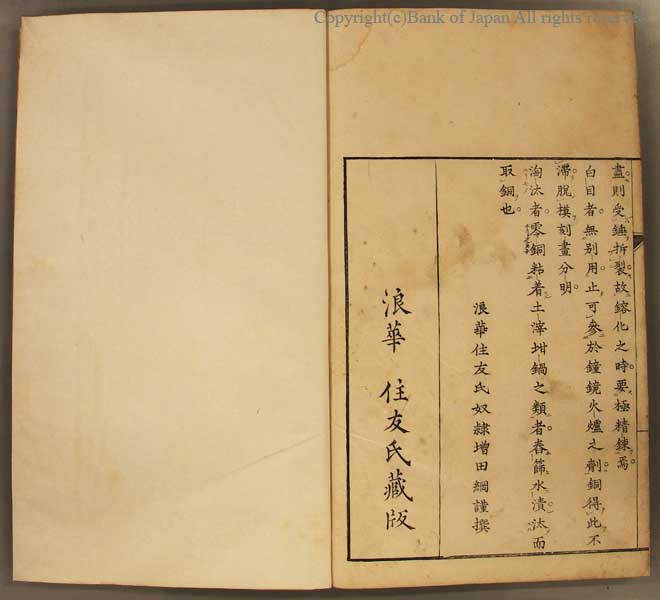 Copyright(c)Bank of Japan All rights reserv
盡則受錘拆裂。故鎔化之時。要極精鍊焉
白目者。無別用。止可參於鐘鏡火爐之劑。銅得此不
滯。脫模刻畫分明。
淘汰者。零銅粘着土滓坩鍋之類者。舂篩水漬汰而
取銅也。
浪華住友氏奴隷增田綱謹撰
浪華 住友氏藏版